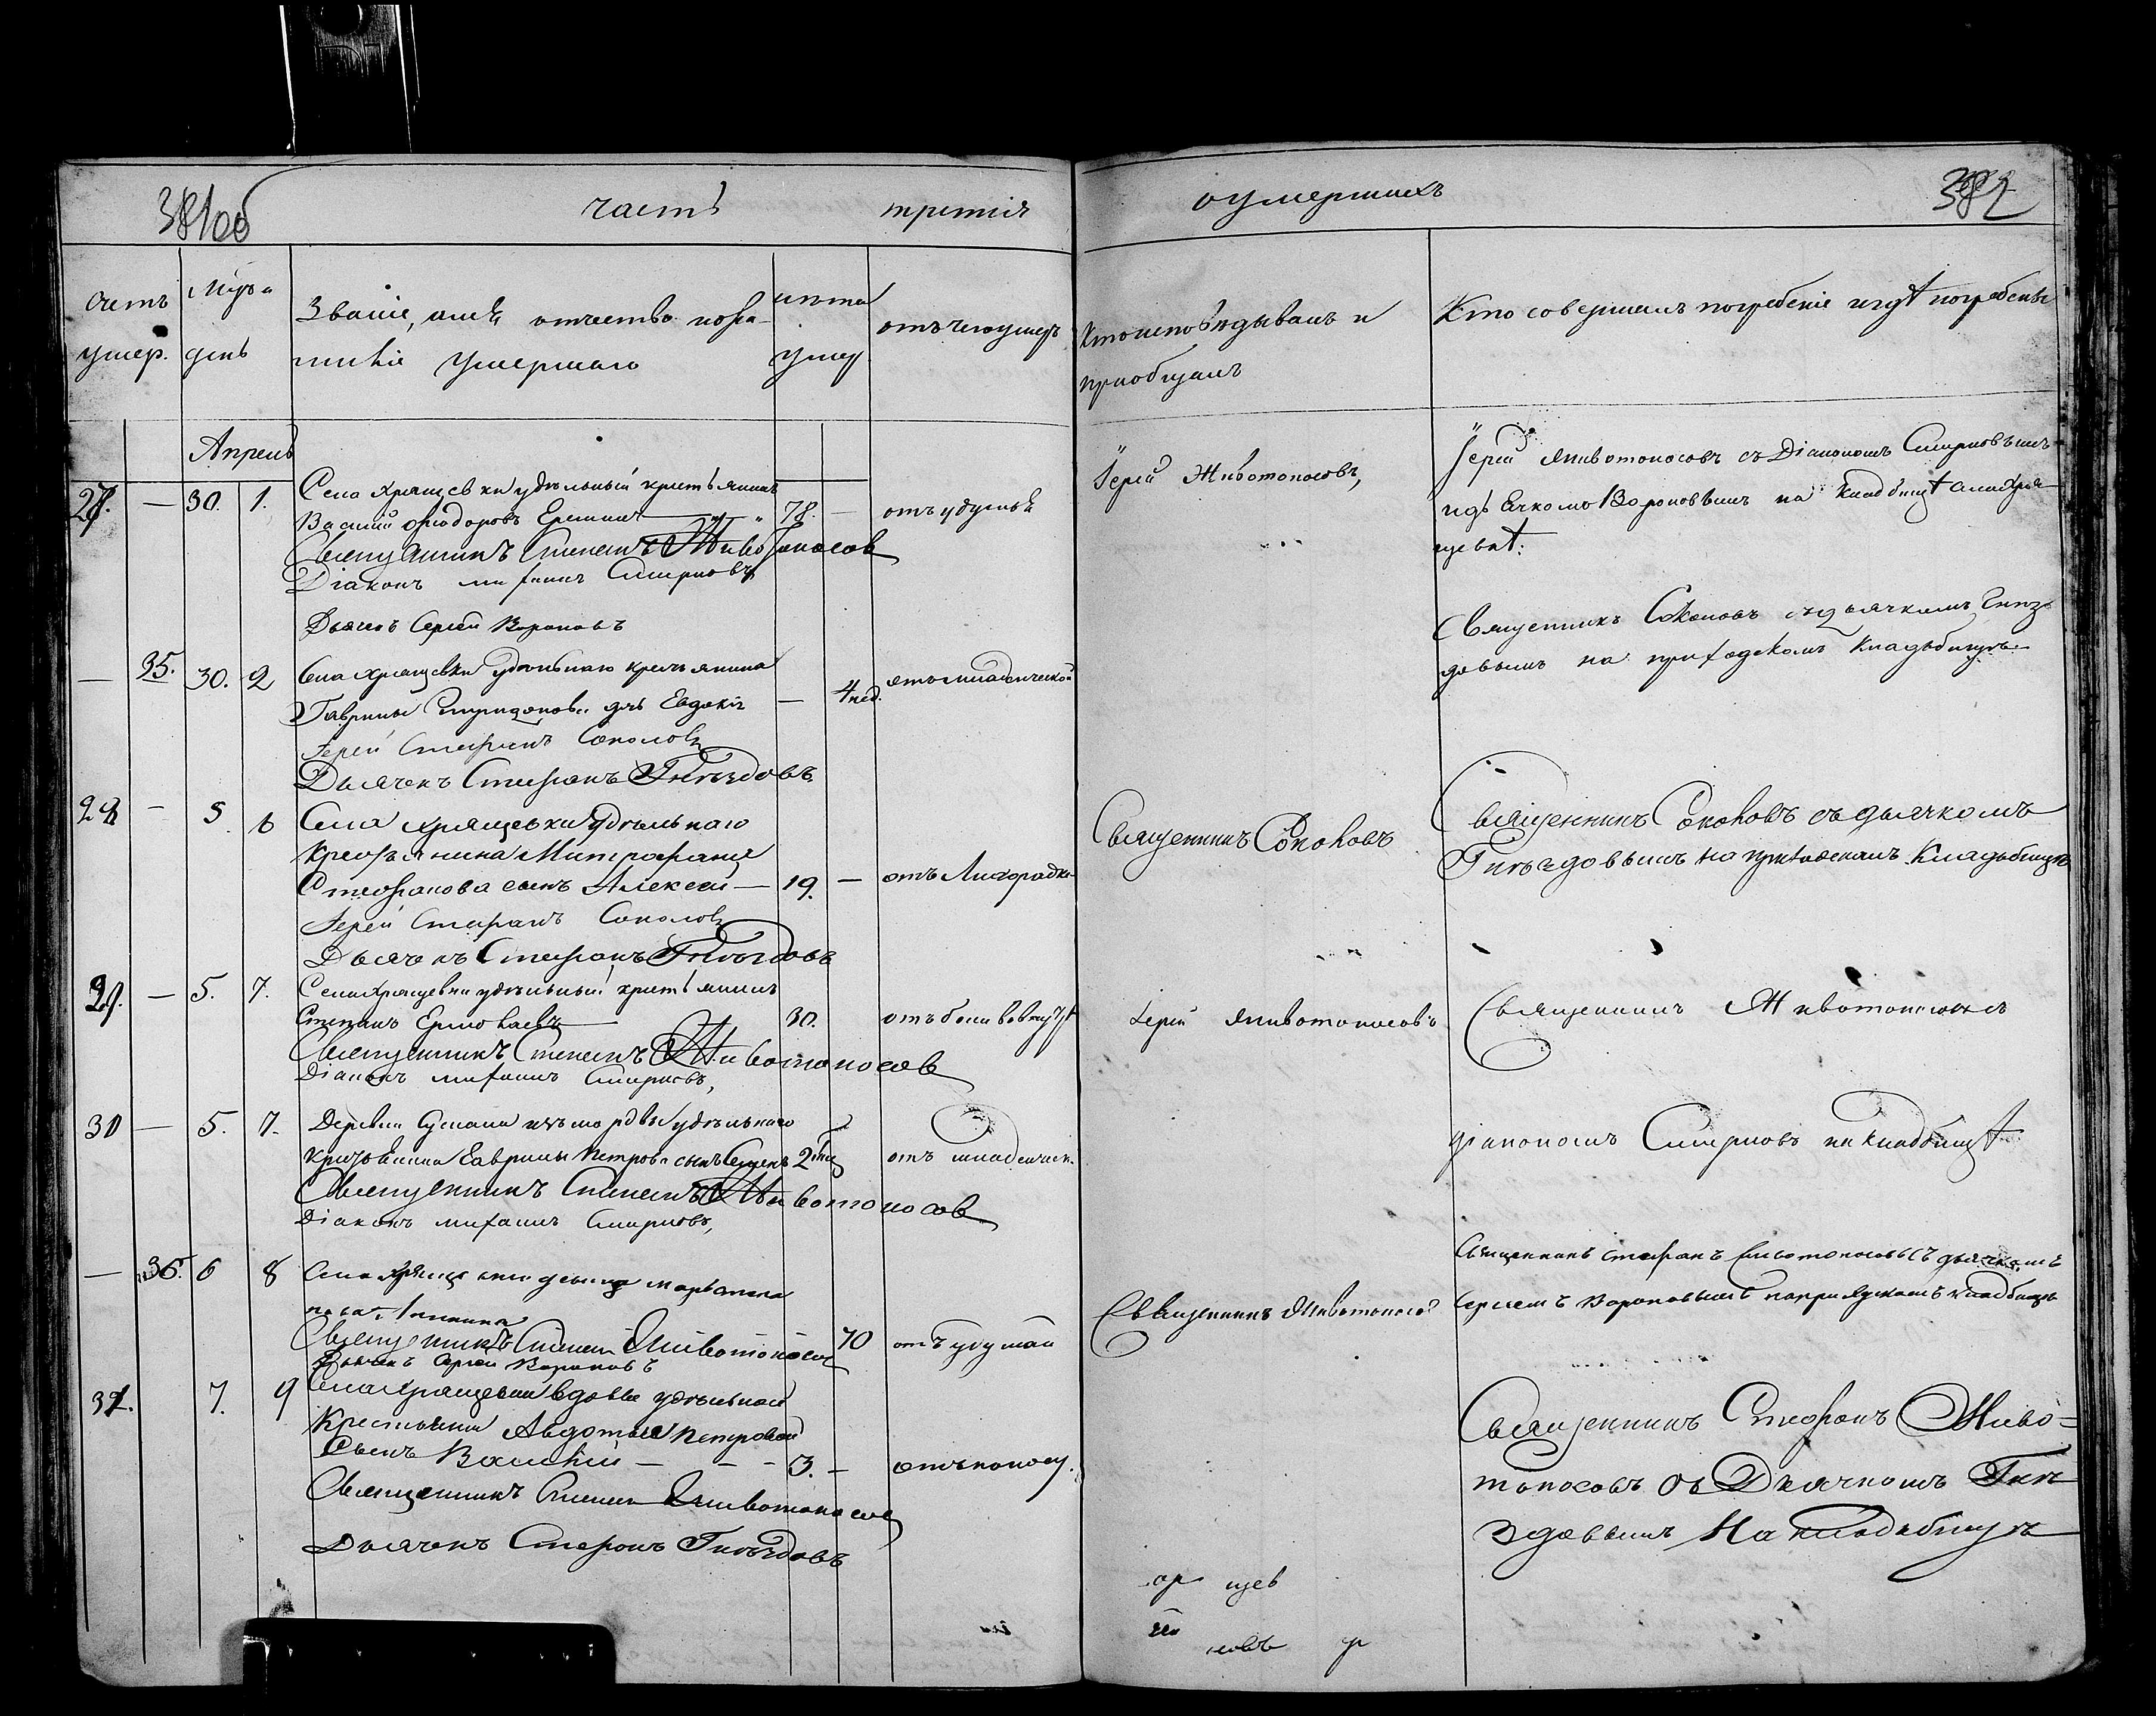 381об
часть третія
о умершихъ
382
счетъ умер.
Мц҃ъ и день
Званіе, имя, отчество и фа-
милія умершаго
лѣта умер
отъ чего умеръ
Кто исповѣдывалъ и
пріобщалъ
Кто совершалъ погребеніе и гдѣ погребены
Апрель
27. — 30. 1.
Села Хрящевки удѣльный крестьянинъ
Василій Ѳеодоровъ Еремин — „ 78. — отъ удушья
Священникъ Стефанъ Животоносов
Діаконъ Михаилъ Смирновъ
Дьячекъ Сергей Вороновъ
Іерей Животоносовъ,
Іерей Животоносовъ съ Діакономъ Смирновымъ
и дьячкомъ Вороновымъ на кладбищѣ села Хря-
щевкѣ:
— 35. 30. 2
Села Хрящевки удѣльнаго крестьянина
Гаврилы Спиридонова дчь Евдокія — 4 нед. отъ младенческой
Іерей Стефанъ Соколовъ
Дьячекъ Стефанъ Гнѣздовъ
Священникъ Соколовъ съ дьячкомъ Гнѣз-
довымъ на приходскомъ кладбищѣ
28 — 5. 6
Села Хрящевки удѣльнаго
Крестьянина Митрофана
Стефанова сынъ Алексей — 19. — отъ Лихорадки
Іерей Стефанъ Соколовъ
Дьячекъ Стефанъ Гнѣздовъ
Священникъ Соколовъ
Священникъ Соколовъ съ дьячкомъ
Гнѣздовымъ на приходскомъ Кладбищѣ
29. — 5. 7.
Села Хрящевки удѣльный крестьянинъ
Степанъ Ермолаевъ — 30. отъ боли в
Священникъ Стефанъ Животоносов
Діаконъ Михаилъ Смирновъ,
Іерей Животоносовъ
Священникъ Животоносовъ съ
30 — 5. 7.
Деревни изъ мордвы удѣльнаго
крестьянина Гаврилы Петрова сынъ Семенъ 2 отъ младенческ.
Священникъ Стефанъ Животоносов
Діаконъ Михаилъ Смирновъ,
діакономъ Смирновъ на кладбищѣ
— 36. 6 8
Села Хрящевки девица
70 отъ удушья
Священникъ Стефанъ Животоносов
Дьячекъ Сергей Вороновъ
Священникъ Животоносов
Священникъ Стефанъ Животоносовъ съ дьячкомъ
Сергеемъ Вороновымъ на приходскомъ кладбищѣ
31. 7. 9
Села Хрящевки вдовы удѣльной
Крестьянки Авдотьи Петровой
Сынъ Василій — — - 3. — отъ поносу.
Священникъ Стефан Животоносов
Дьячекъ Стефанъ Гнѣздовъ
Священникъ Стефанъ Живо=
тоносовъ съ Дьячкомъ Гнѣ
здовымъ На кладбищѣ